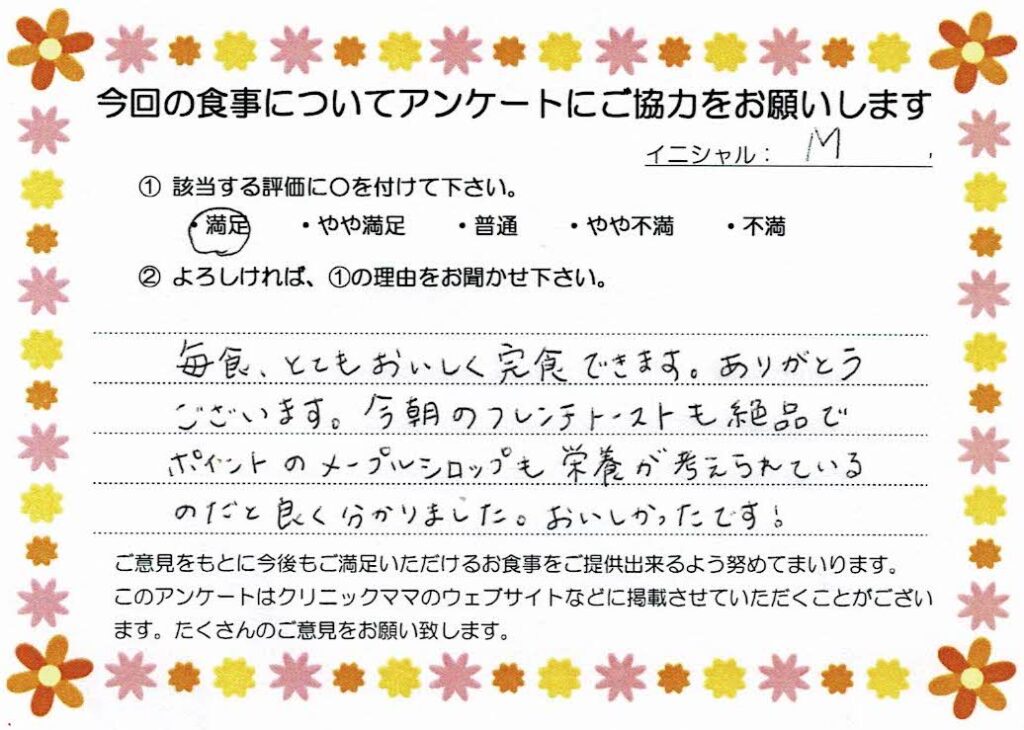 今回の食事についてアンケートにご協力をお願いします
イニシャル： M
① 該当する評価に〇を付けて下さい。
・満足 ・やや満足 ・普通 ・やや不満 ・不満
② よろしければ、①の理由をお聞かせ下さい。
毎食、とてもおいしく完食できます。ありがとう
ございます。今朝のフレンチトーストも絶品で
ポイントのメープルシロップも栄養が考えられている
のだと良く分かりました。おいしかったです！
ご意見をもとに今後もご満足いただけるお食事をご提供出来るよう努めてまいります。
このアンケートはクリニックママのウェブサイトなどに掲載させていただくことがござい
ます。たくさんのご意見をお願い致します。